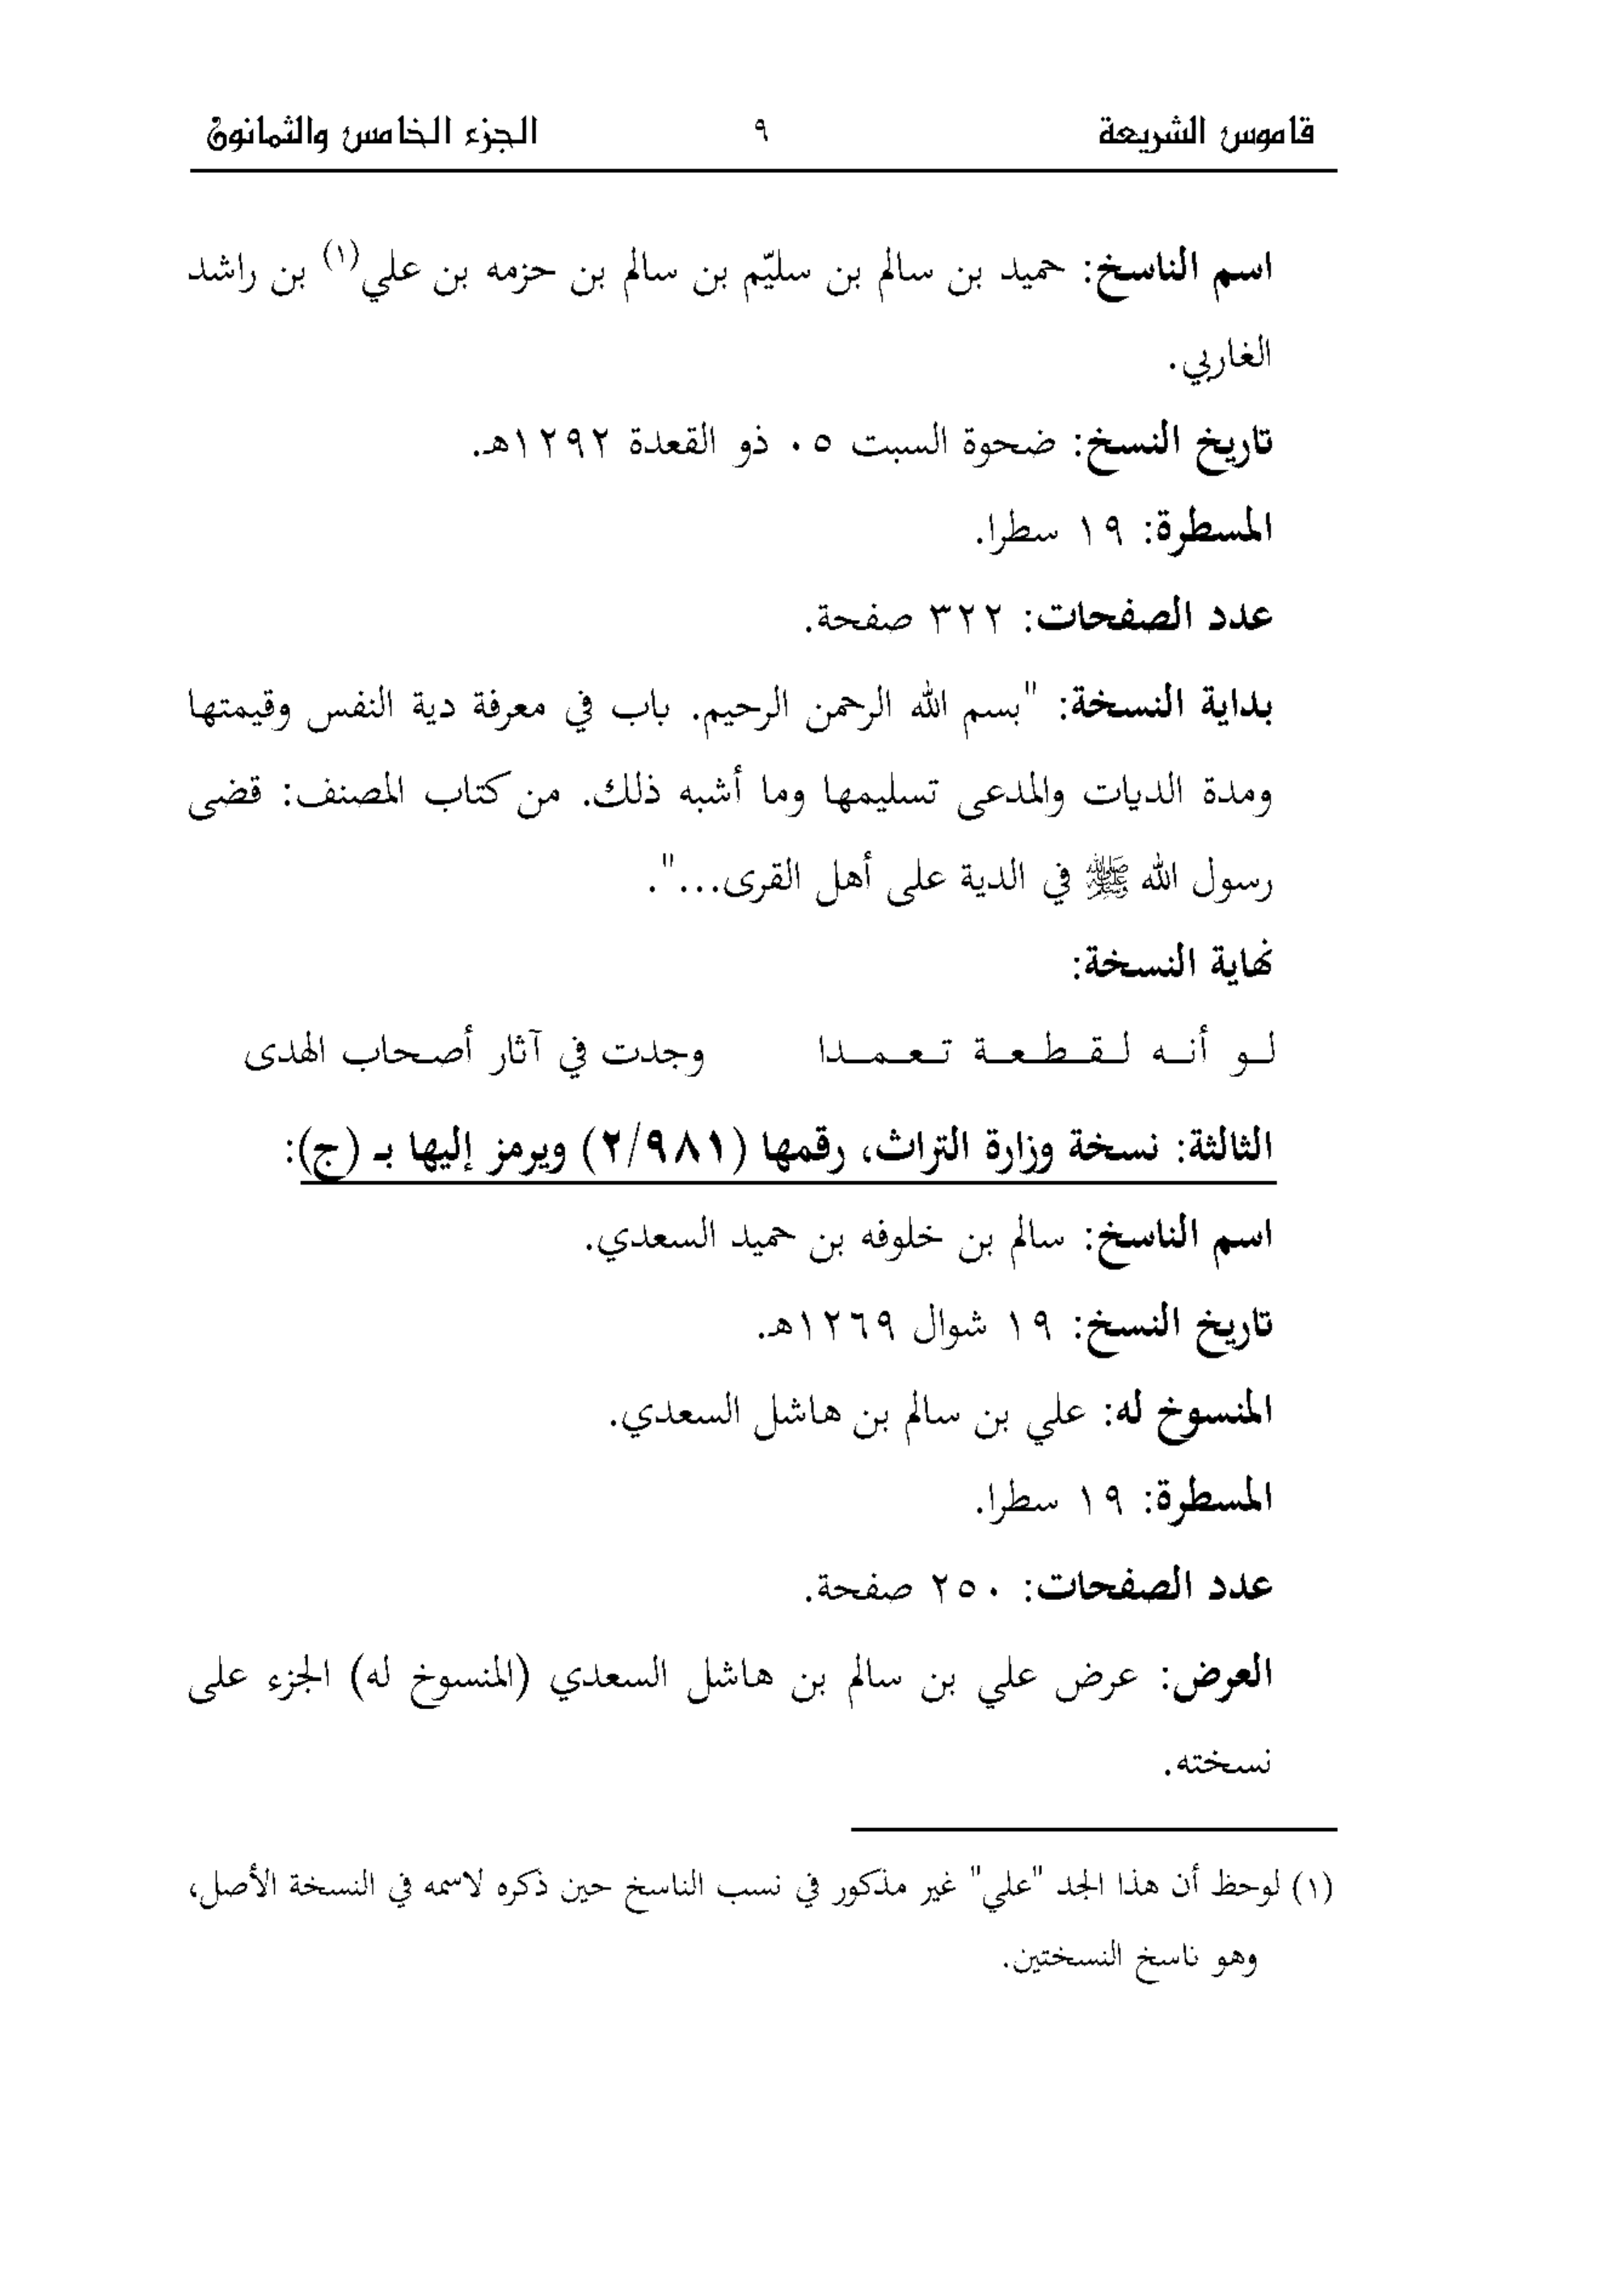 قاموس الشريعة ٩ الجزء الخامس والثمانون
اسم الناسخ: حميد بن سالم بن سليّم بن سالم بن حزمه بن علي(١) بن راشد
الغاربي.
تاريخ النسخ: ضحوة السبت ٠٥ ذو القعدة ١٢٩٢هـ.
المسطرة: ١٩ سطرا.
عدد الصفحات: ٣٢٢ صفحة.
بداية النسخة: "بسم الله الرحمن الرحيم. باب في معرفة دية النفس وقيمتها
ومدة الديات والمدعى تسليمها وما أشبه ذلك. من كتاب المصنف: قضى
رسول الله ﷺ في الدية على أهل القرى...".
نهاية النسخة:
لو أنه لقطعة تعمدا وجدت في آثار أصحاب الهدى
الثالثة: نسخة وزارة التراث، رقمها (٢/٩٨١) ويرمز إليها بـ (ج):
اسم الناسخ: سالم بن خلوفه بن حميد السعدي.
تاريخ النسخ: ١٩ شوال ١٢٦٩هـ.
المنسوخ له: علي بن سالم بن هاشل السعدي.
المسطرة: ١٩ سطرا.
عدد الصفحات: ٢٥٠ صفحة.
العرض: عرض علي بن سالم بن هاشل السعدي (المنسوخ له) الجزء على
نسخته.
(١) لوحظ أن هذا الجد "علي" غير مذكور في نسب الناسخ حين ذكره لاسمه في النسخة الأصل،
وهو ناسخ النسختين.